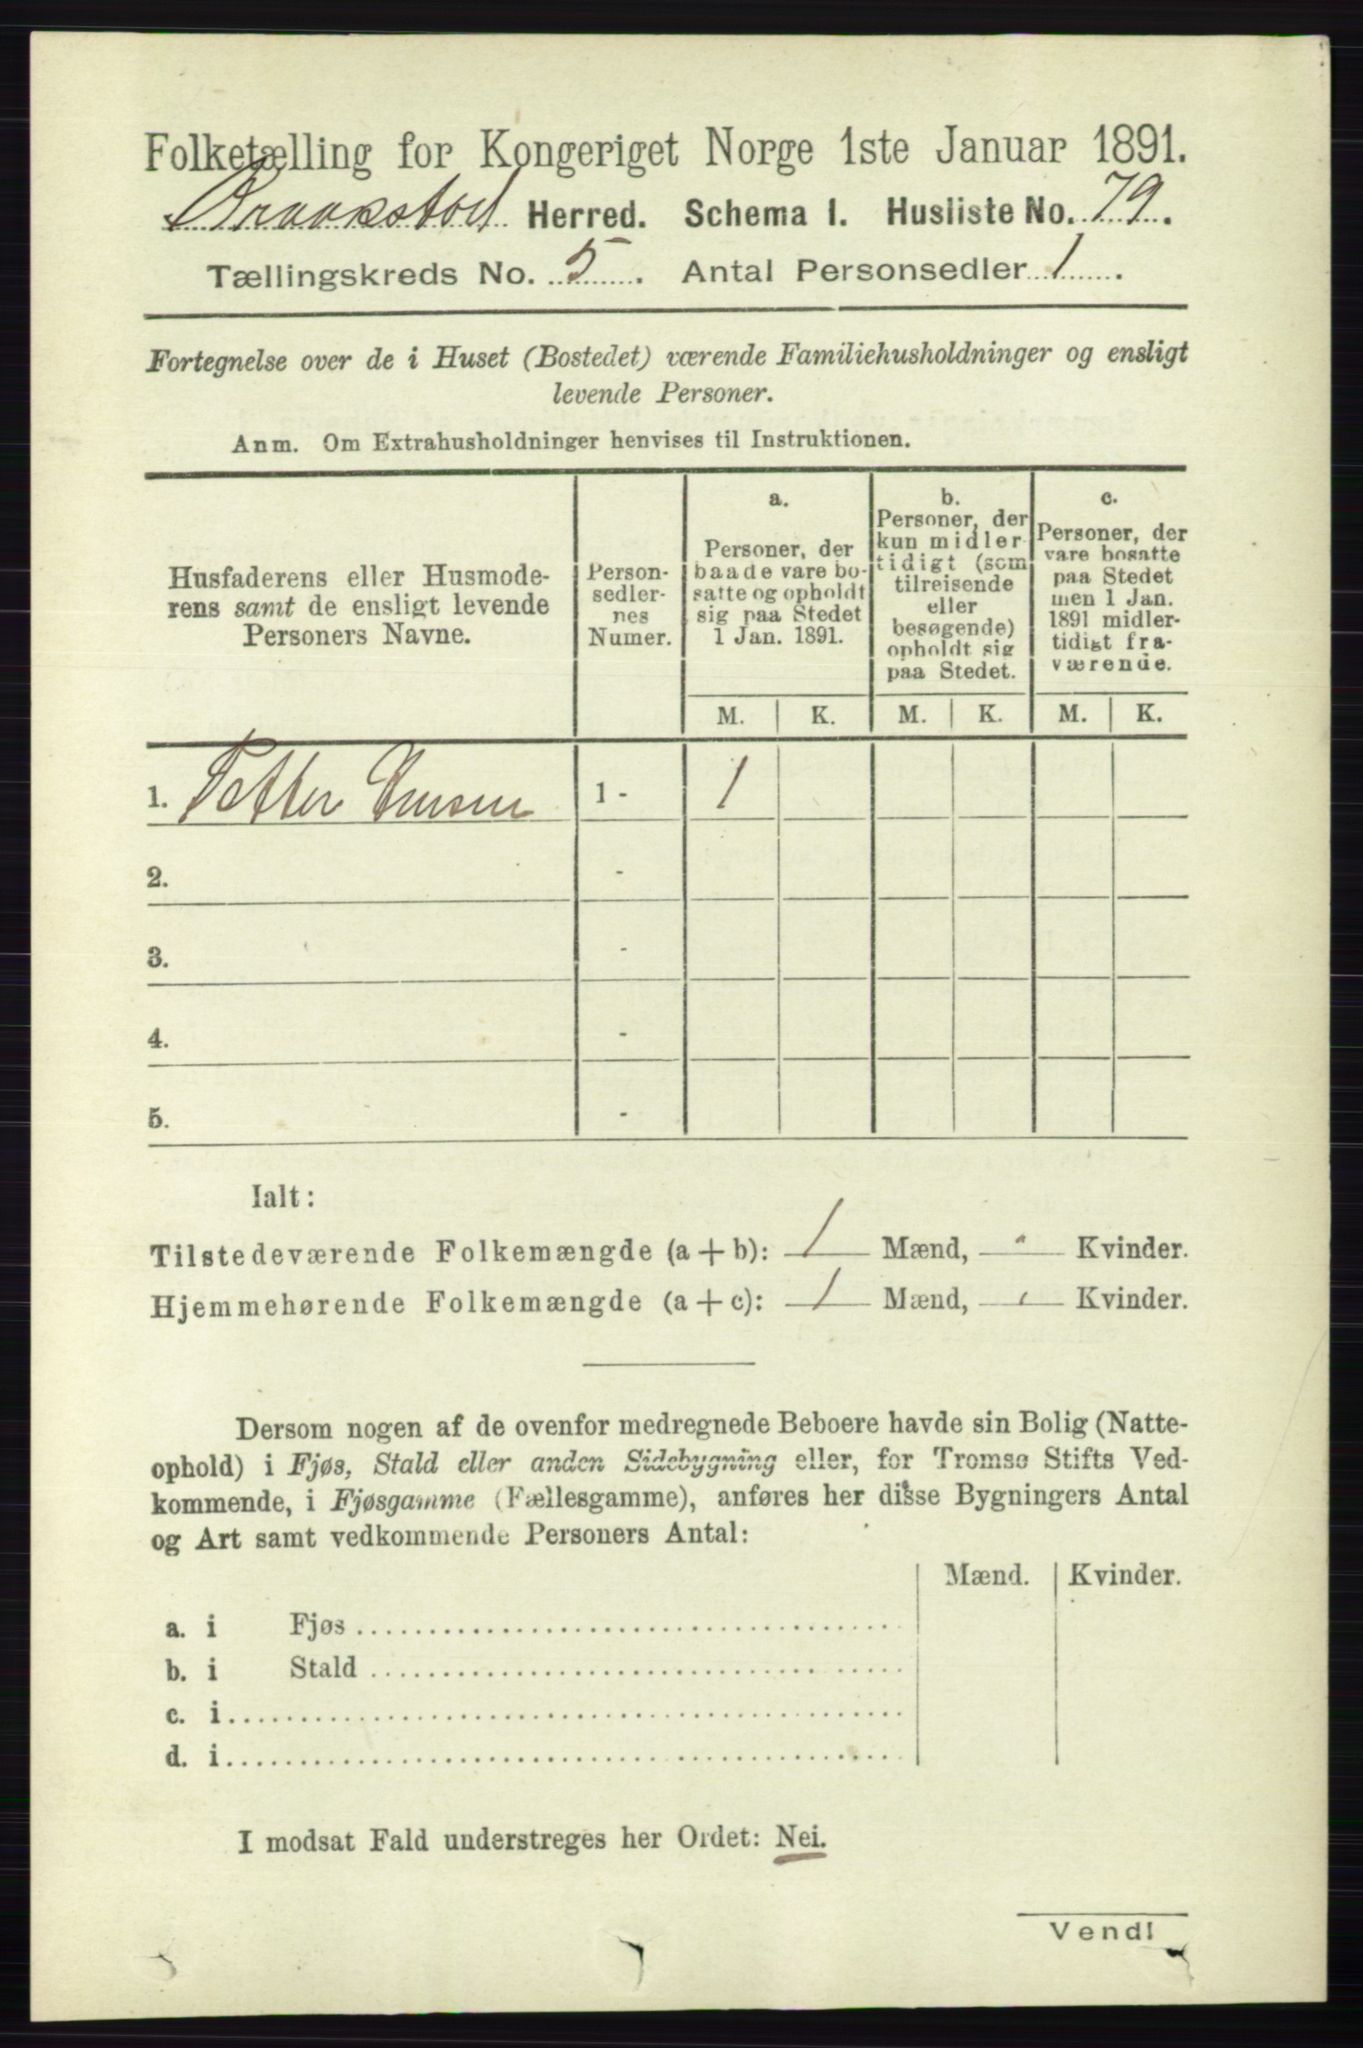 Folketælling for Kongeriget Norge 1ste Januar 1891.
Herred. Schema 1. Husliste No. 79.
Tællingskreds No. 5. Antal Personsedler 1.
Fortegnelse over de i Huset (Bostedet) værende Familiehusholdninger og ensligt
levende Personer.
Anm. Om Extrahusholdninger henvises til Instruktionen.
Husfaderens eller Husmode-
rens samt de ensligt levende
Personers Navne.
Person-
sedler-
nes
Numer.
a.
Personer, der
baade vare bo-
satte og opholdt
sig paa Stedet
1 Jan. 1891.
b.
Personer, der
kun midler-
tidigt (som
tilreisende
eller
besøgende)
opholdt sig
paa Stedet.
c.
Personer, der
vare bosatte
paa Stedet
men 1 Jan.
1891 midler-
tidigt fra-
værende.
M. K. M. K. M. K.
1. Petter 1 - 1
2. -
3. -
4. -
5. -
Ialt:
Tilstedeværende Folkemængde (a + b): 1 Mænd, - Kvinder.
Hjemmehørende Folkemængde (a + c): 1 Mænd, - Kvinder.
Dersom nogen af de ovenfor medregnede Beboere havde sin Bolig (Natte-
ophold) i Fjøs, Stald eller anden Sidebygning eller, for Tromsø Stifts Ved-
kommende, i Fjøsgamme (Fællesgamme), anføres her disse Bygningers Antal
og Art samt vedkommende Personers Antal:
Mænd. Kvinder.
a. i Fjøs
b. i Stald
c. i
d. i
I modsat Fald understreges her Ordet: Nei.
Vend!